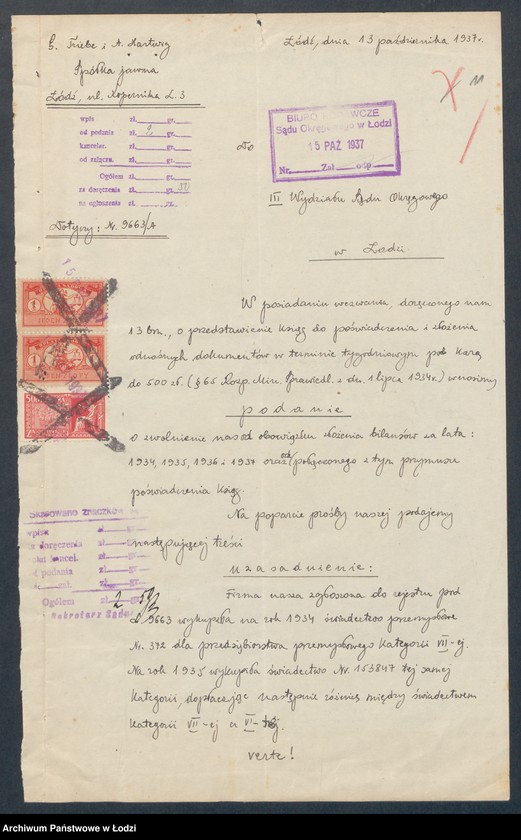 G. Triebe i A. Hartwig
Spółka jawna
Łódź, ul. Kopernika L. 3
Łódź, dnia 13 października 1937 r.
wpis zł. gr.
od podania zł. 2 gr.
kancelar. zł. gr.
od załącz. zł. gr.
Ogółem zł. gr.
za doręczenia zł. gr. 50
na ogłoszenia zł.
Dotyczy: Nr. 9663/A
BIURO
Sądu Okręgowego w Łodzi
15 PAŹ 1937
Nr. Zał.
Do
III Wydziału Sądu Okręgowego
w Łodzi
W posiadaniu wezwania, doręczonego nam
13 bm., o przedstawienie ksiąg do poświadczenia i złożenia
odnośnych dokumentów w terminie tygodniowym pod karą
do 500 zł. (§ 65 Rozp. Min. Sprawiedl. z dn. 1 lipca 1934 r.) wnosimy
podanie
o zwolnienie nas od obowiązku złożenia bilansów za lata:
1934, 1935, 1936 i 1937 oraz od połączonego z tym przymusu
poświadczenia ksiąg.
Na poparcie prośby naszej podajemy
następującej treści
Uzasadnienie:
Firma nasza zgłoszona do rejestru pod
9663 wykupiła na rok 1934 świadectwo przemysłowe
Nr. 372 dla przedsiębiorstwa przemysłowego kategorii VII-ej.
Na rok 1935 wykupiła świadectwo Nr. 153847 tej samej
kategorii, dopłacając następnie różnicę między świadectwem
kategorii VII-ej a VI-tej.
verte!
Skasowano znaczków
wpisu zł. gr.
za doręczenia zł. gr.
kancel. zł. gr.
podania zł. gr.
zł. gr.
Ogółem zł. 2 gr. 50
Sekretarz Sądu
Archiwum Państwowe w Łodzi